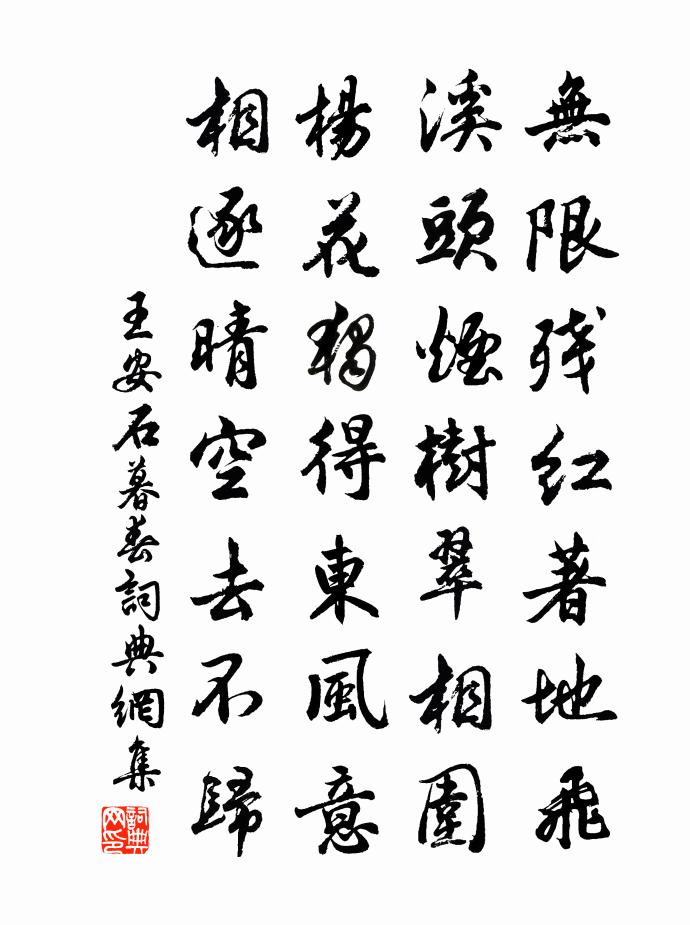 無限残紅著地飛
溪頭煙樹翠相圍
楊花獨得東風意
相逐晴空去不歸
王安石暮春詞典網集
詞典网印